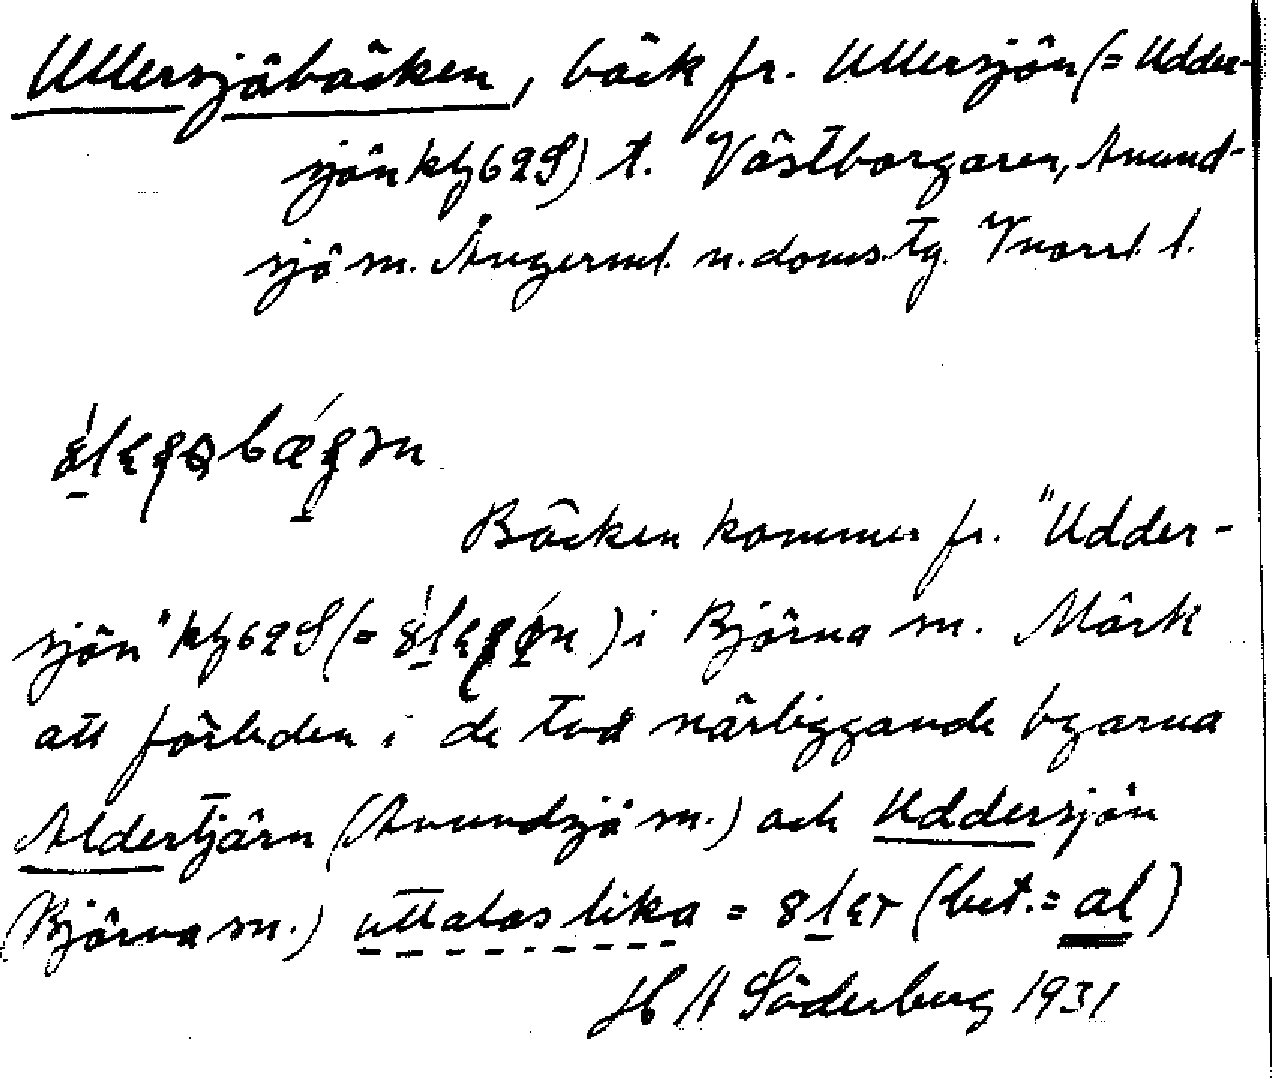 Ullersjöbäcken, bäck fr. Ullersjön (= Udder-
sjön kbl 62S) t. Västborgaren, Anund-
sjö sn. Ångerml. n. doms.tg. Vnorrl l.
Bäcken kommer fr. "Udder-
sjön" kbl 62S (= ) i Björna sn. Märk
att förleden i de två närliggande byarna
Aldertjärn (Anundsjö sn.) och Uddersjön
(Björna sn.) uttalas lika = (bet. = al)
H A Söderberg 1931